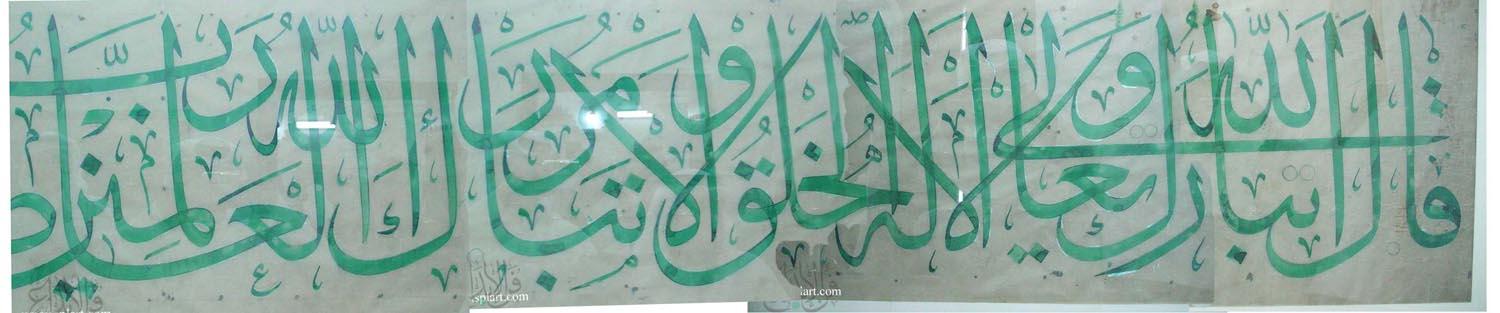 قال الله تبارك وتعالى ألا له الخلق والأمر تبارك الله رب العالمين
spiart.com
iart.com